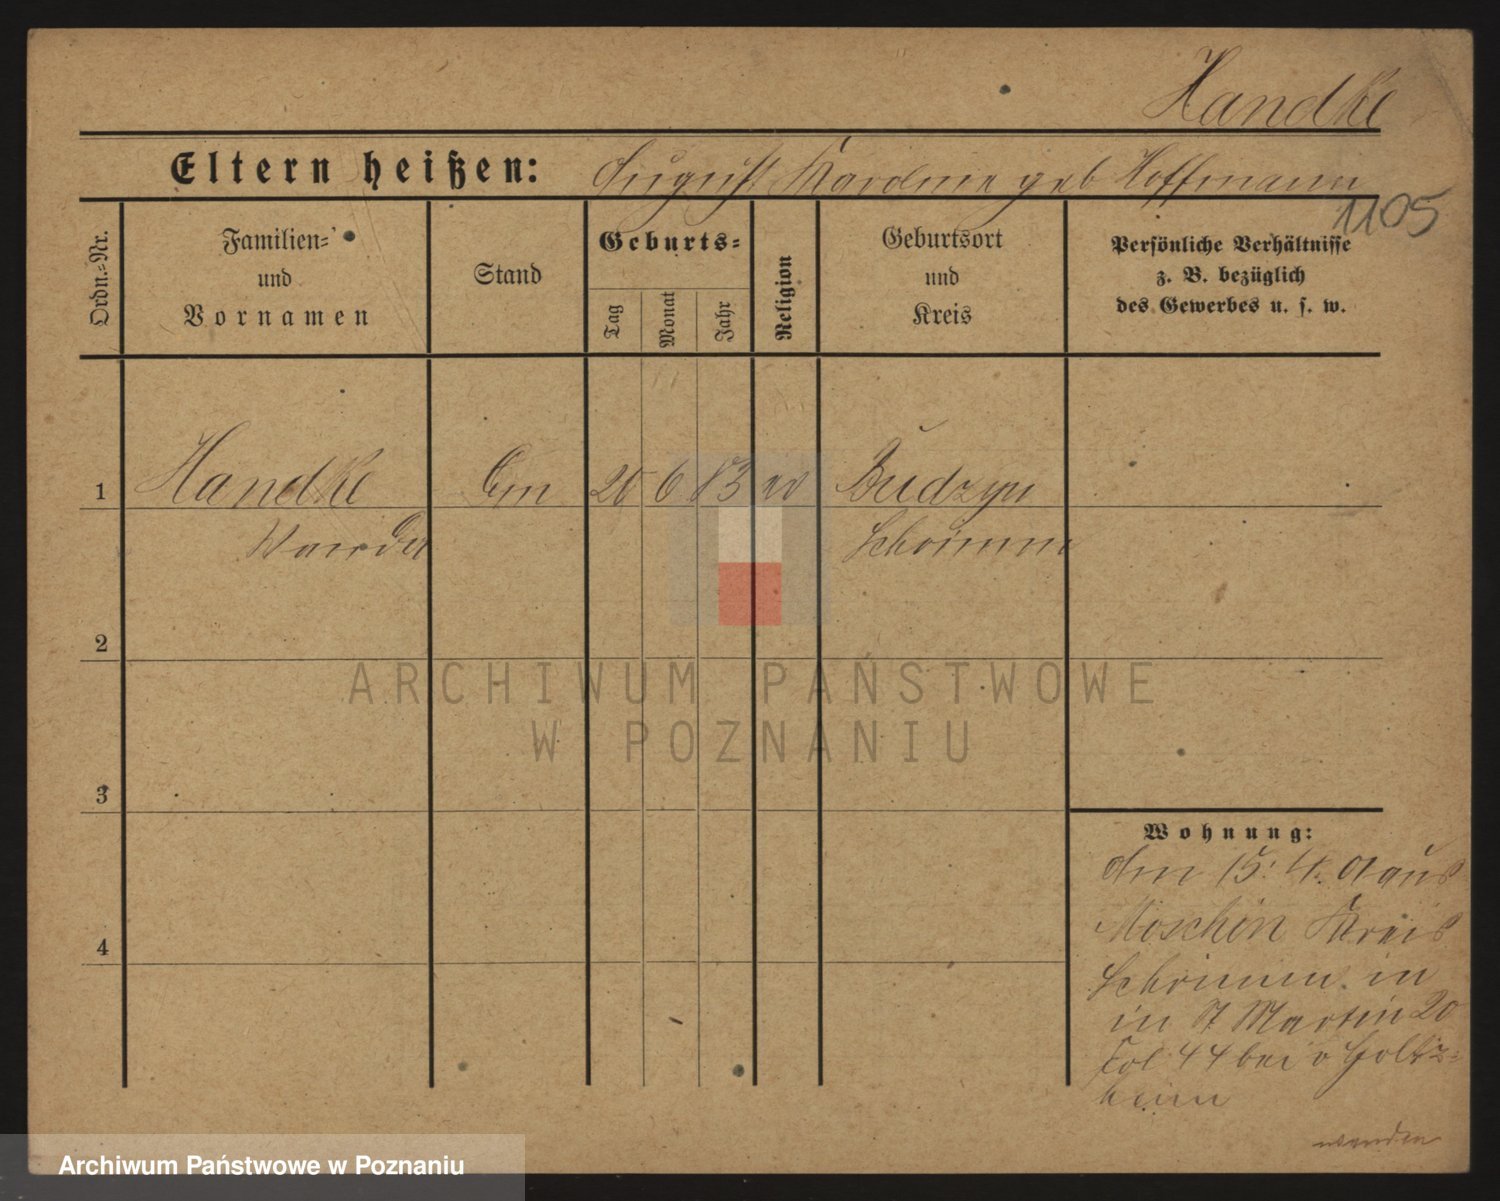 Handke
Eltern heißen: August Karoline geb Hoffmann
1105
Ordn.-Nr.
Familien-
und
Vornamen
Stand
Geburts-
Tag
Monat
Jahr
Religion
Geburtsort
und
Kreis
Persönliche Verhältnisse
z. B. bezüglich
des Gewerbes u. s. w.
1 Handke 20 6 83 Budzyn
Wanda Schrimm
2
3
4
Wohnung:
Am 15. 4. aus
Moschin Kreis
Schrimm in
in St Martin 20
Fol 44 bei v Holtz-
heim
ARCHIWUM PAŃSTWOWE
W POZNANIU
Archiwum Państwowe w Poznaniu